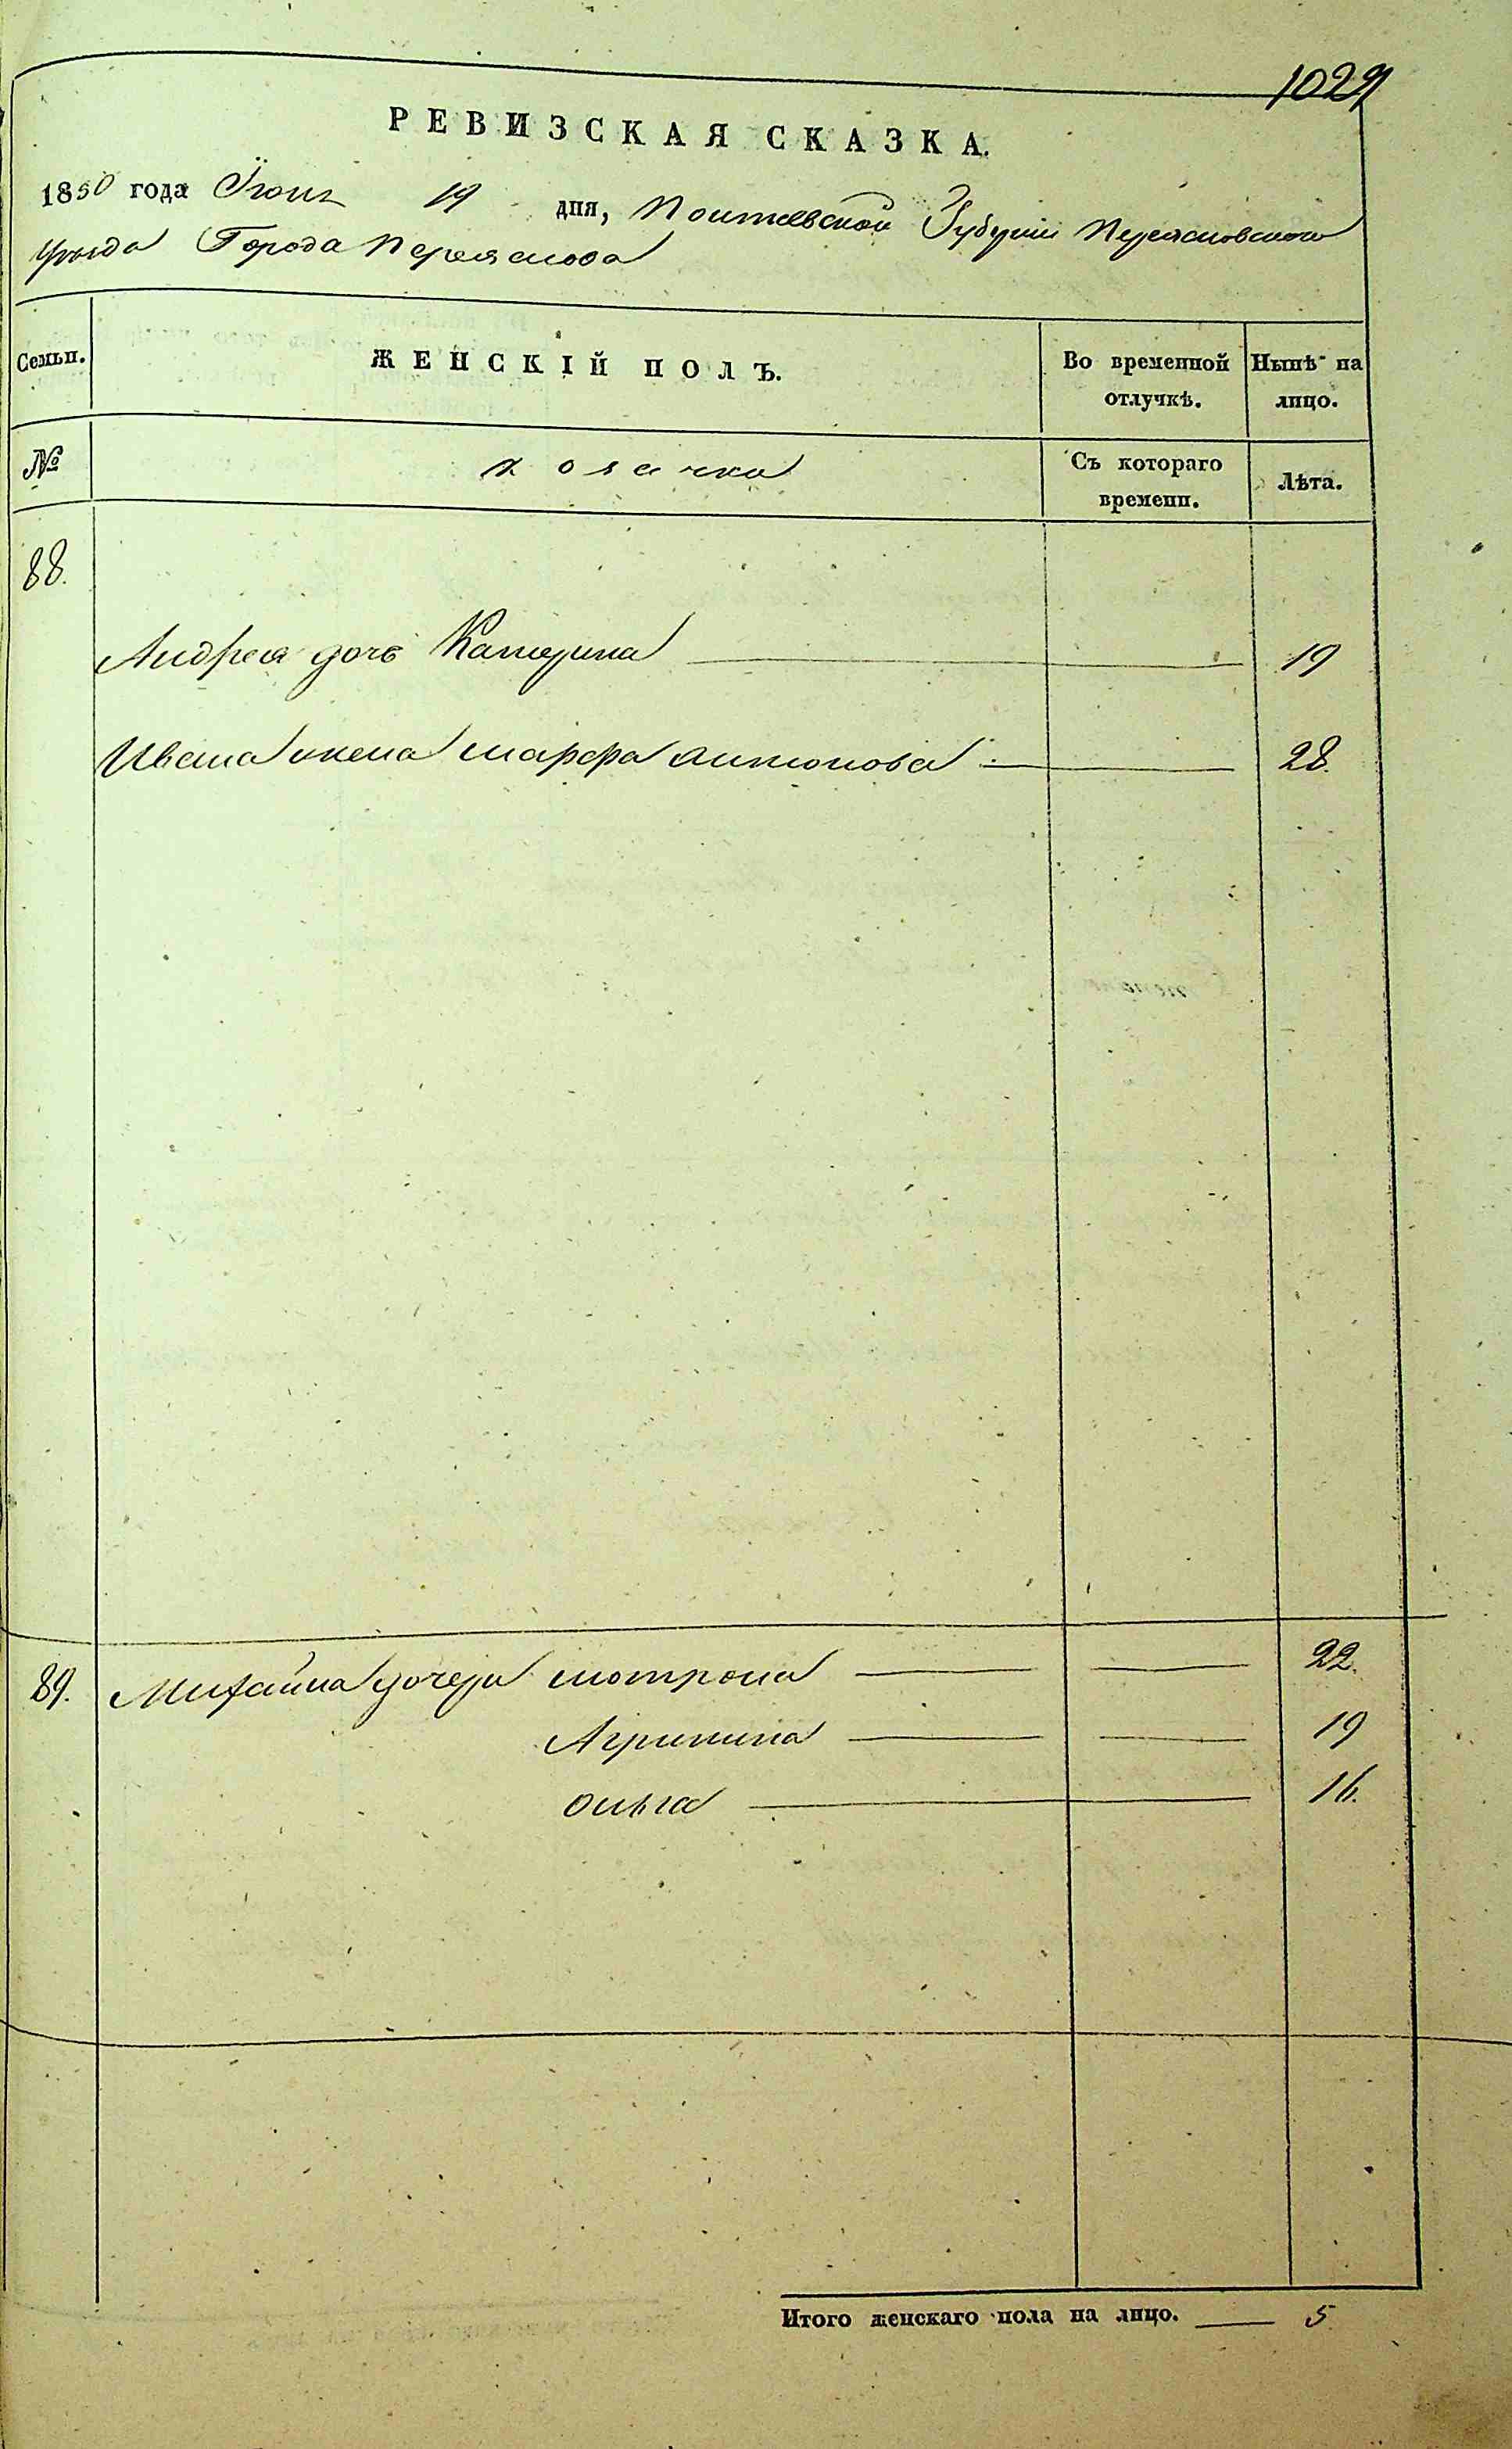 1029
РЕВИЗСКАЯ СКАЗКА.
1850 года Іюня 19 дня, Полтавской Губернiи Переясловского
уезда Города Переяслова
Семьи. ЖЕНСКІЙ ПОЛЪ. Во временной отлучкѣ. Нынѣ на лицо.
№ козачки Съ котораго времени. Лѣта.
88.
Андрея дочь Катерина 19
Ивана жена марфа антонова 28.
89. Михайла дочери мотрона 22.
Агрипина 19
ольга 16.
Итого женскаго пола на лицо. 5